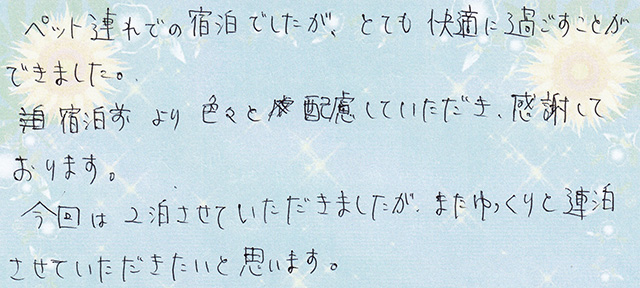 ペット連れでの宿泊でしたが、とても快適に過ごすことが
できました。
宿泊前より色々と配慮していただき、感謝して
おります。
今回は2泊させていただきましたが、またゆっくりと連泊
させていただきたいと思います。